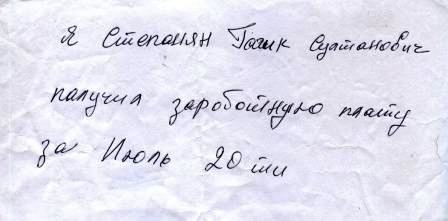 Я Степанян Гагик Султанович
палучил заработную плату
за Июль 20 тыс